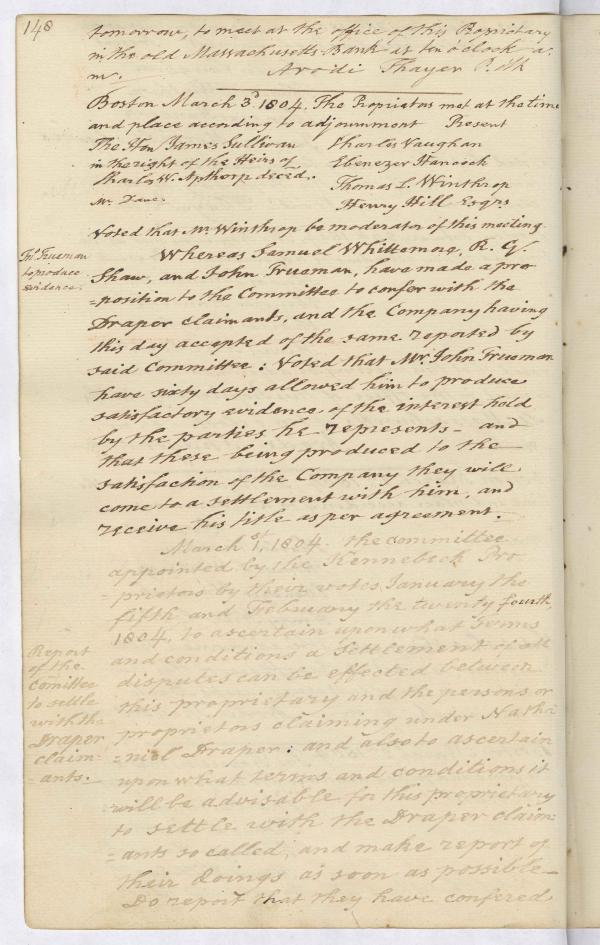 148
tomorrow, to meet at the office of this Propriatary
in the old Massachusetts Bank at ten o'clock a.
m.
Arodi Thayer P. Clk
Boston March 3d. 1804. The Proprietors met at the time
and place according to adjournment Present
The Hon James Sullivan
in the right of the Heirs of
Charles W. Apthorp deced..
Mr. Dave.
Charles Vaughan
Ebenezer Hancock
Thomas L. Winthrop
Henry Hill Esqrs
Voted that Mr. Winthrop be moderator of this meeting.
Jno. Trueman
to produce
evidence.
Whereas Samuel Whittemore, R. G.
Shaw, and John Trueman, have made a pro
=position to the Committee to confer with the
Draper claimants, and the Company having
this day accepted of the same reported by
said Committee: Voted that Mr. John Trueman
have sixty days allowed him to produce
satisfactory evidence of the interest hold
by the parties he represents - and
that these being produced to the
satisfaction of the Company they will
come to a settlement with him, and
receive his title as per agreement.
March 1st, 1804. the committee
appointed by the Kennebeck Pro
=prietors by their votes January the
fifth and February the twenty fourth,
1804, to ascertain upon what Terms
and conditions a Settlement of all
disputes can be effected between
this propriatary and the persons or
proprietors claiming under Natha
=niel Draper: and also to ascertain
upon what terms and conditions it
will be advisable for this propriatary
to settle with the Draper claim=
=ants so called, and make report of
their doings as soon as possible—
Do report that they have confered
Report
of the
Comittee
to settle
with the
Draper
claim=
=ants.